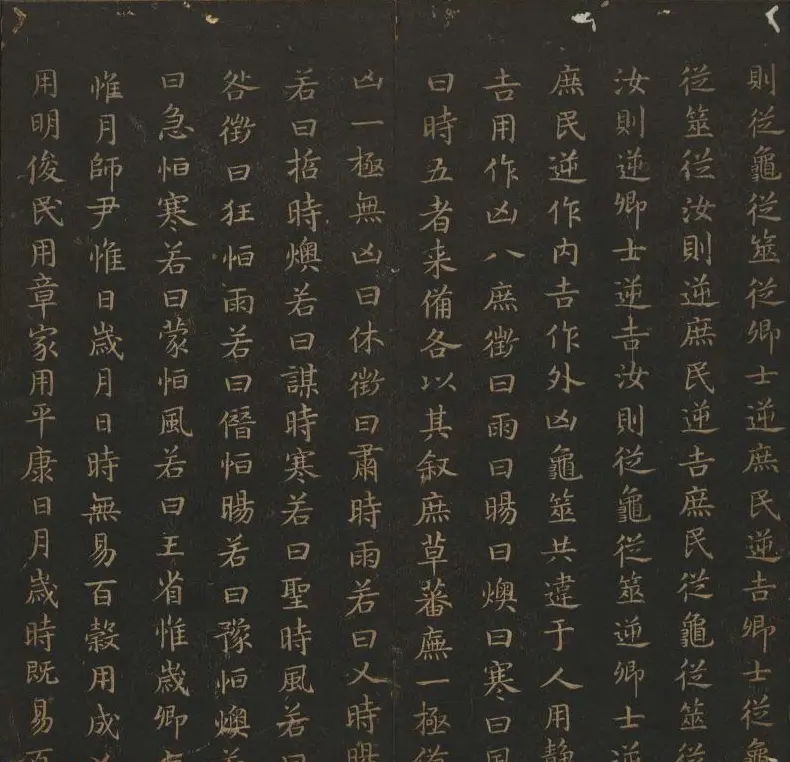 則從龜從筮從卿士逆庶民逆吉卿士從龜
從筮從汝則逆庶民逆吉庶民從龜從筮從
汝則逆卿士逆吉汝則從龜從筮逆卿士逆
庶民逆作内吉作外凶龜筮共違于人用静
吉用作凶八庶徵曰雨曰暘曰燠曰寒曰風
曰時五者来備各以其叙庶草蕃廡一極備
凶一極無凶曰休徵曰肅時雨若曰乂時暘
若曰哲時燠若曰謀時寒若曰聖時風若曰
咎徵曰狂恒雨若曰僭恒暘若曰豫恒燠若
曰急恒寒若曰蒙恒風若曰王省惟歲卿
惟月師尹惟日歲月日時無易百穀用成
用明俊民用章家用平康日月歲時既易百